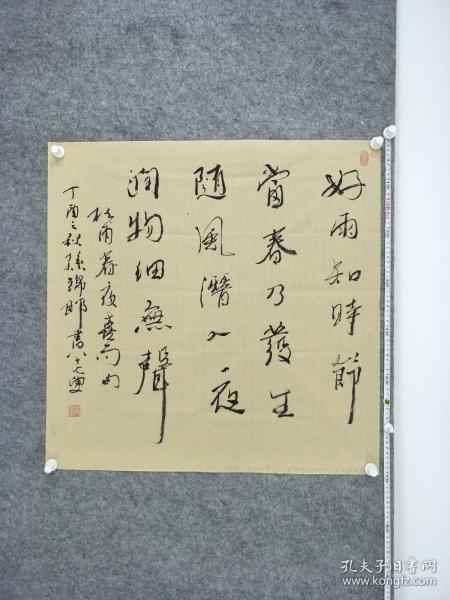 好雨知時節
當春乃發生
隨風潛入夜
潤物細無聲
杜甫春夜喜雨句
丁酉之秋 錦郎書
孔夫子旧书网
www.kongfz.com